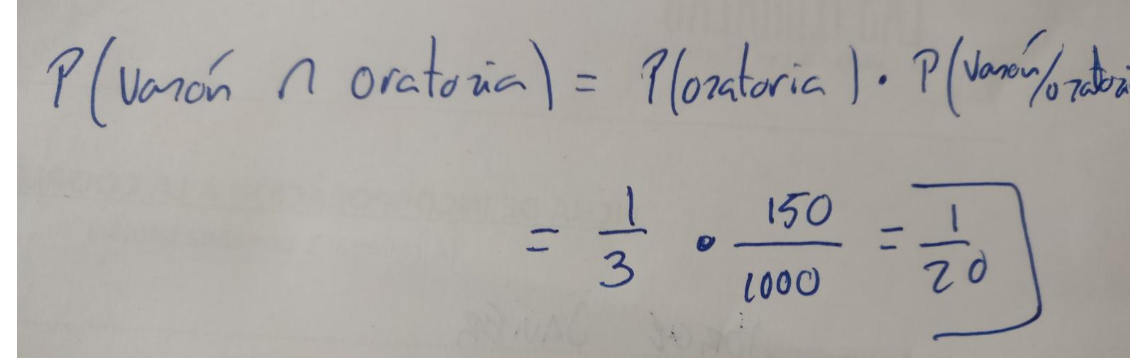 P(Varón ∩ oratoria) = P(oratoria) · P(Varón/oratori
= 1/3 · 150/1000 = 1/20